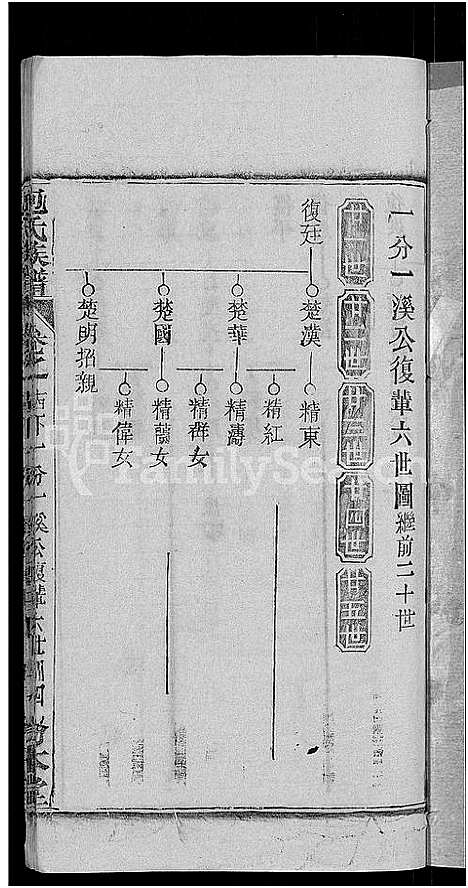 一分一溪公復輩六世圖繼前二十世
廿一世
廿二世
廿三世
廿四世
廿五世
復廷
楚漢
精東
精紅
楚華
精濤
精群女
楚國
精蘭女
楚明招親
精偉女
氏族譜
卷之一
分一溪公復輩六世
FamilySearch